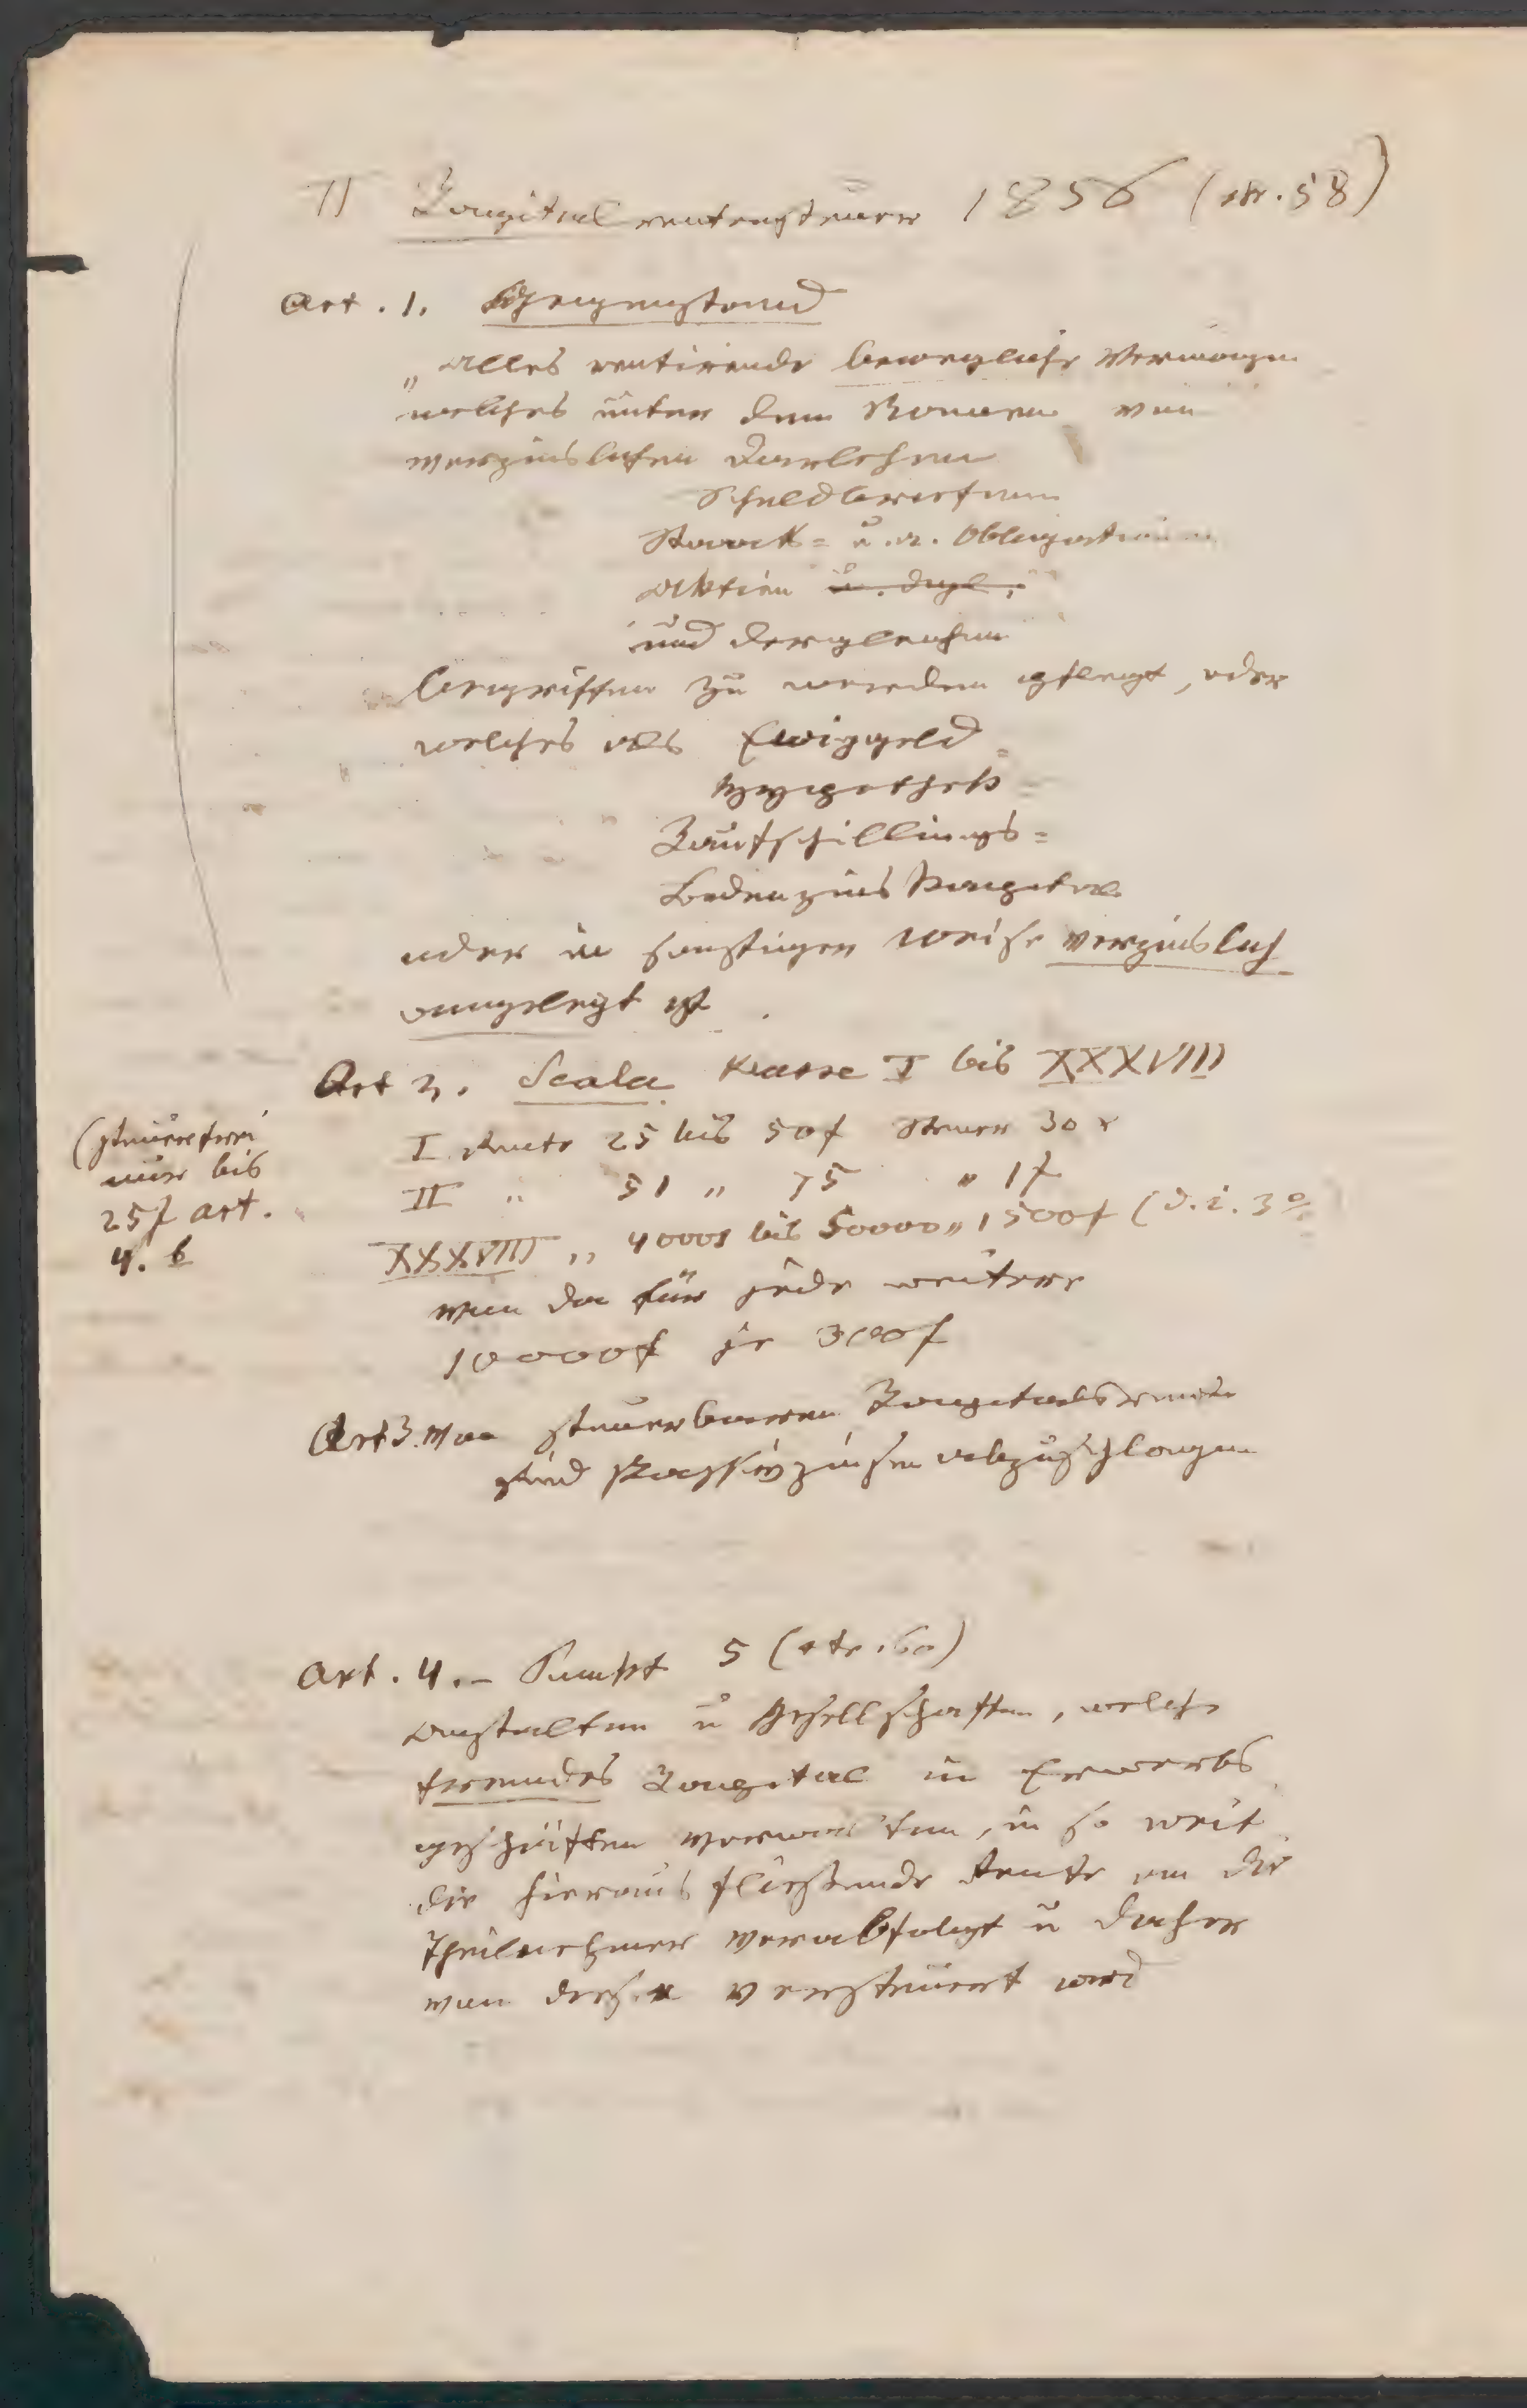 II Kapitalrentensteuer 1856 (str. 58)
Art. 1. Gegenstand
„Alles rentirende bewegliche Vermögen
welches unter dem Namen von
verzinslichen Darlehen
Schuldbriefen
Staats= u. a. Obligationen
Aktien u. dgl.
und dergleichen
begriffen zu werden pflegt, oder
welches als Ewiggeld=
Hypothek=
Kaufschillings=
Bodenzinskapital
oder in sonstiger Weise verzinslich
angelegt ist.
Art 2. Scala Klasse I bis XXXVIII
(steuerfrei
nur bis
25f art.
4. b
I. Rente 25 bis 50f Steuer 30 x
II „ 51 „ 75 „ 1f
XXXVIII „ 40001 bis 50000 „ 1500f (d. i. 3%
von da für jede weitere
10000f je 300f
Art 3. Von steuerbaren Kapitalsrenten
sind Passivzinsen abzuschlagen
Art. 4. – Punkt 5 (str. 60)
Anstalten u Gesellschaften, welche
fremdes Kapital in Erwerbs
geschäften verwalten, in so weit
die hieraus fließende Rente an die
Theilnehmer verabfolgt u daher
von dieser versteuert wird